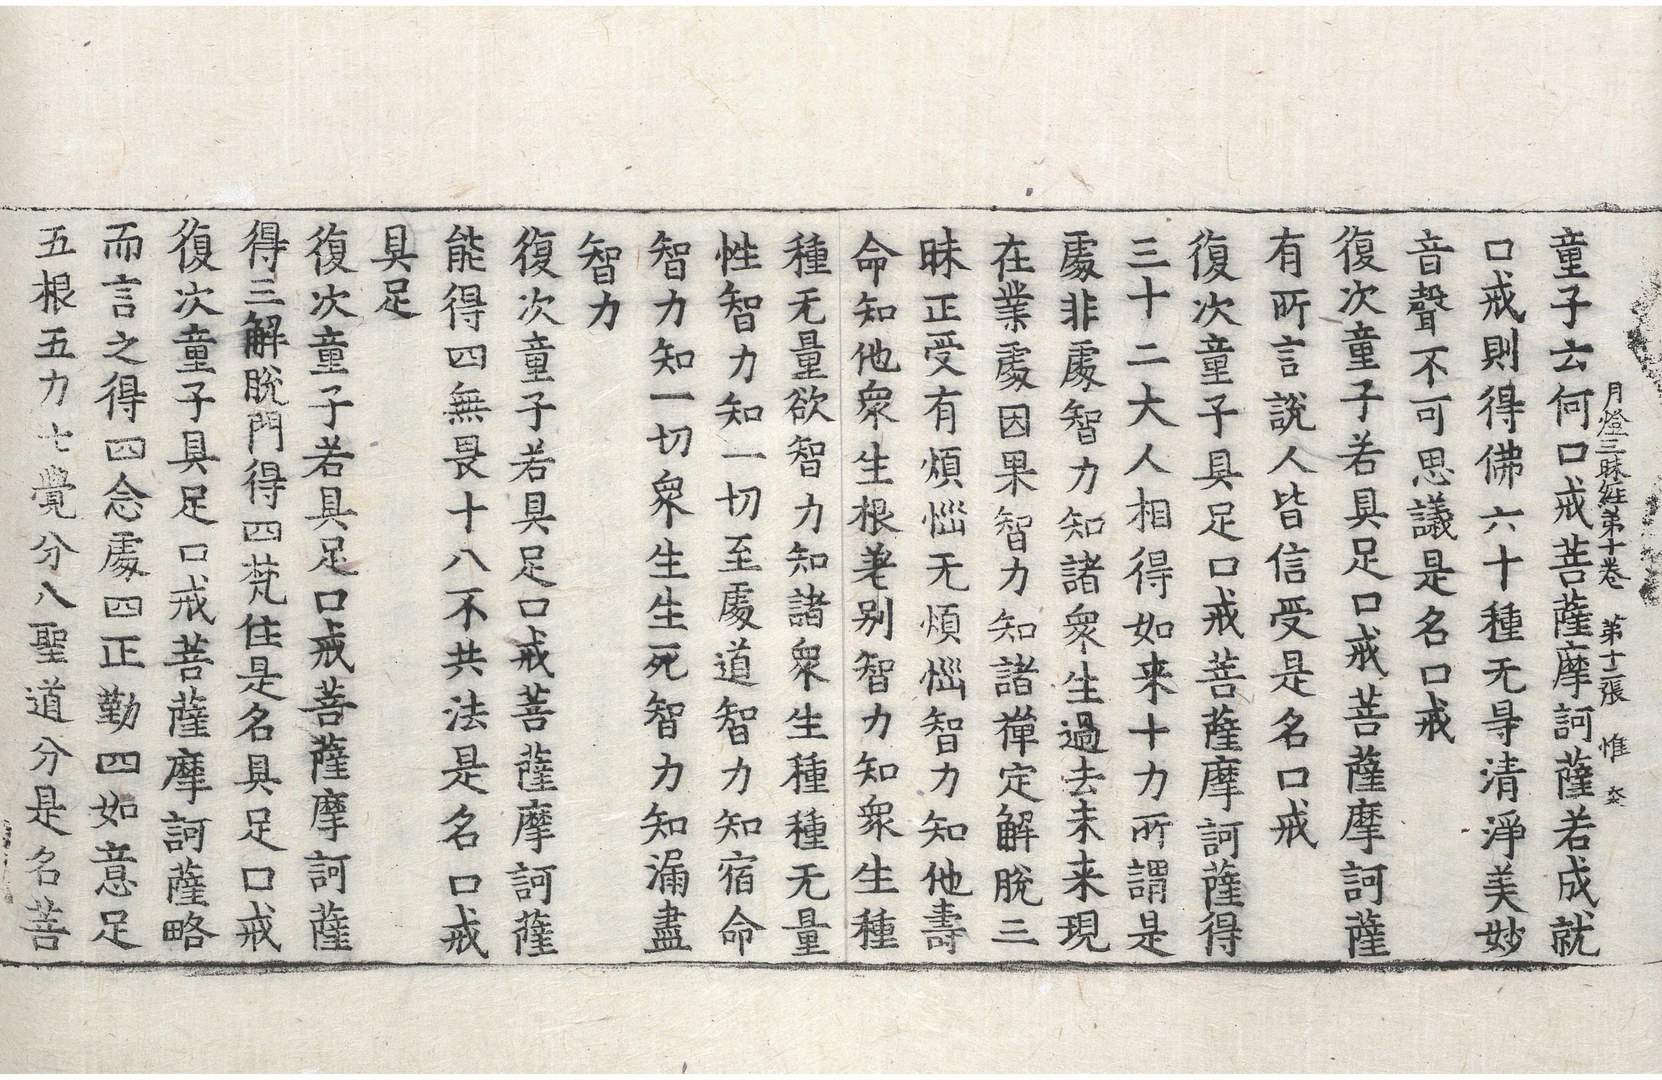 月燈三昧経第十卷　第十二張　惟
童子云何口戒菩薩摩訶薩若成就
口戒則得佛六十種无㝵清淨美妙
音聲不可思議是名口戒
復次童子若具足口戒菩薩摩訶薩
有所言說人皆信受是名口戒
復次童子具足口戒菩薩摩訶薩得
三十二大人相得如来十力所謂是
處非處智力知諸衆生過去未来現
在業處因果智力知諸禪定解脫三
昧正受有煩惱无煩惱智力知他壽
命知他衆生根差别智力知衆生種
種无量欲智力知諸衆生種種无量
性智力知一切至處道智力知宿命
智力知一切衆生生死智力知漏盡
智力
復次童子若具足口戒菩薩摩訶薩
能得四無畏十八不共法是名口戒
具足
復次童子若具足口戒菩薩摩訶薩
得三解脫門得四梵住是名具足口戒
復次童子具足口戒菩薩摩訶薩略
而言之得四念處四正勤四如意足
五根五力七覺分八聖道分是名菩